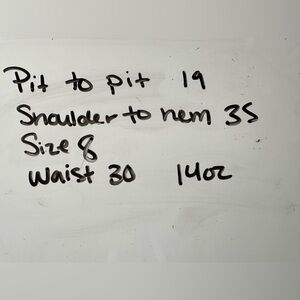 Pit to pit 19
Shoulder to hem 35
Size 8
Waist 30 14oz